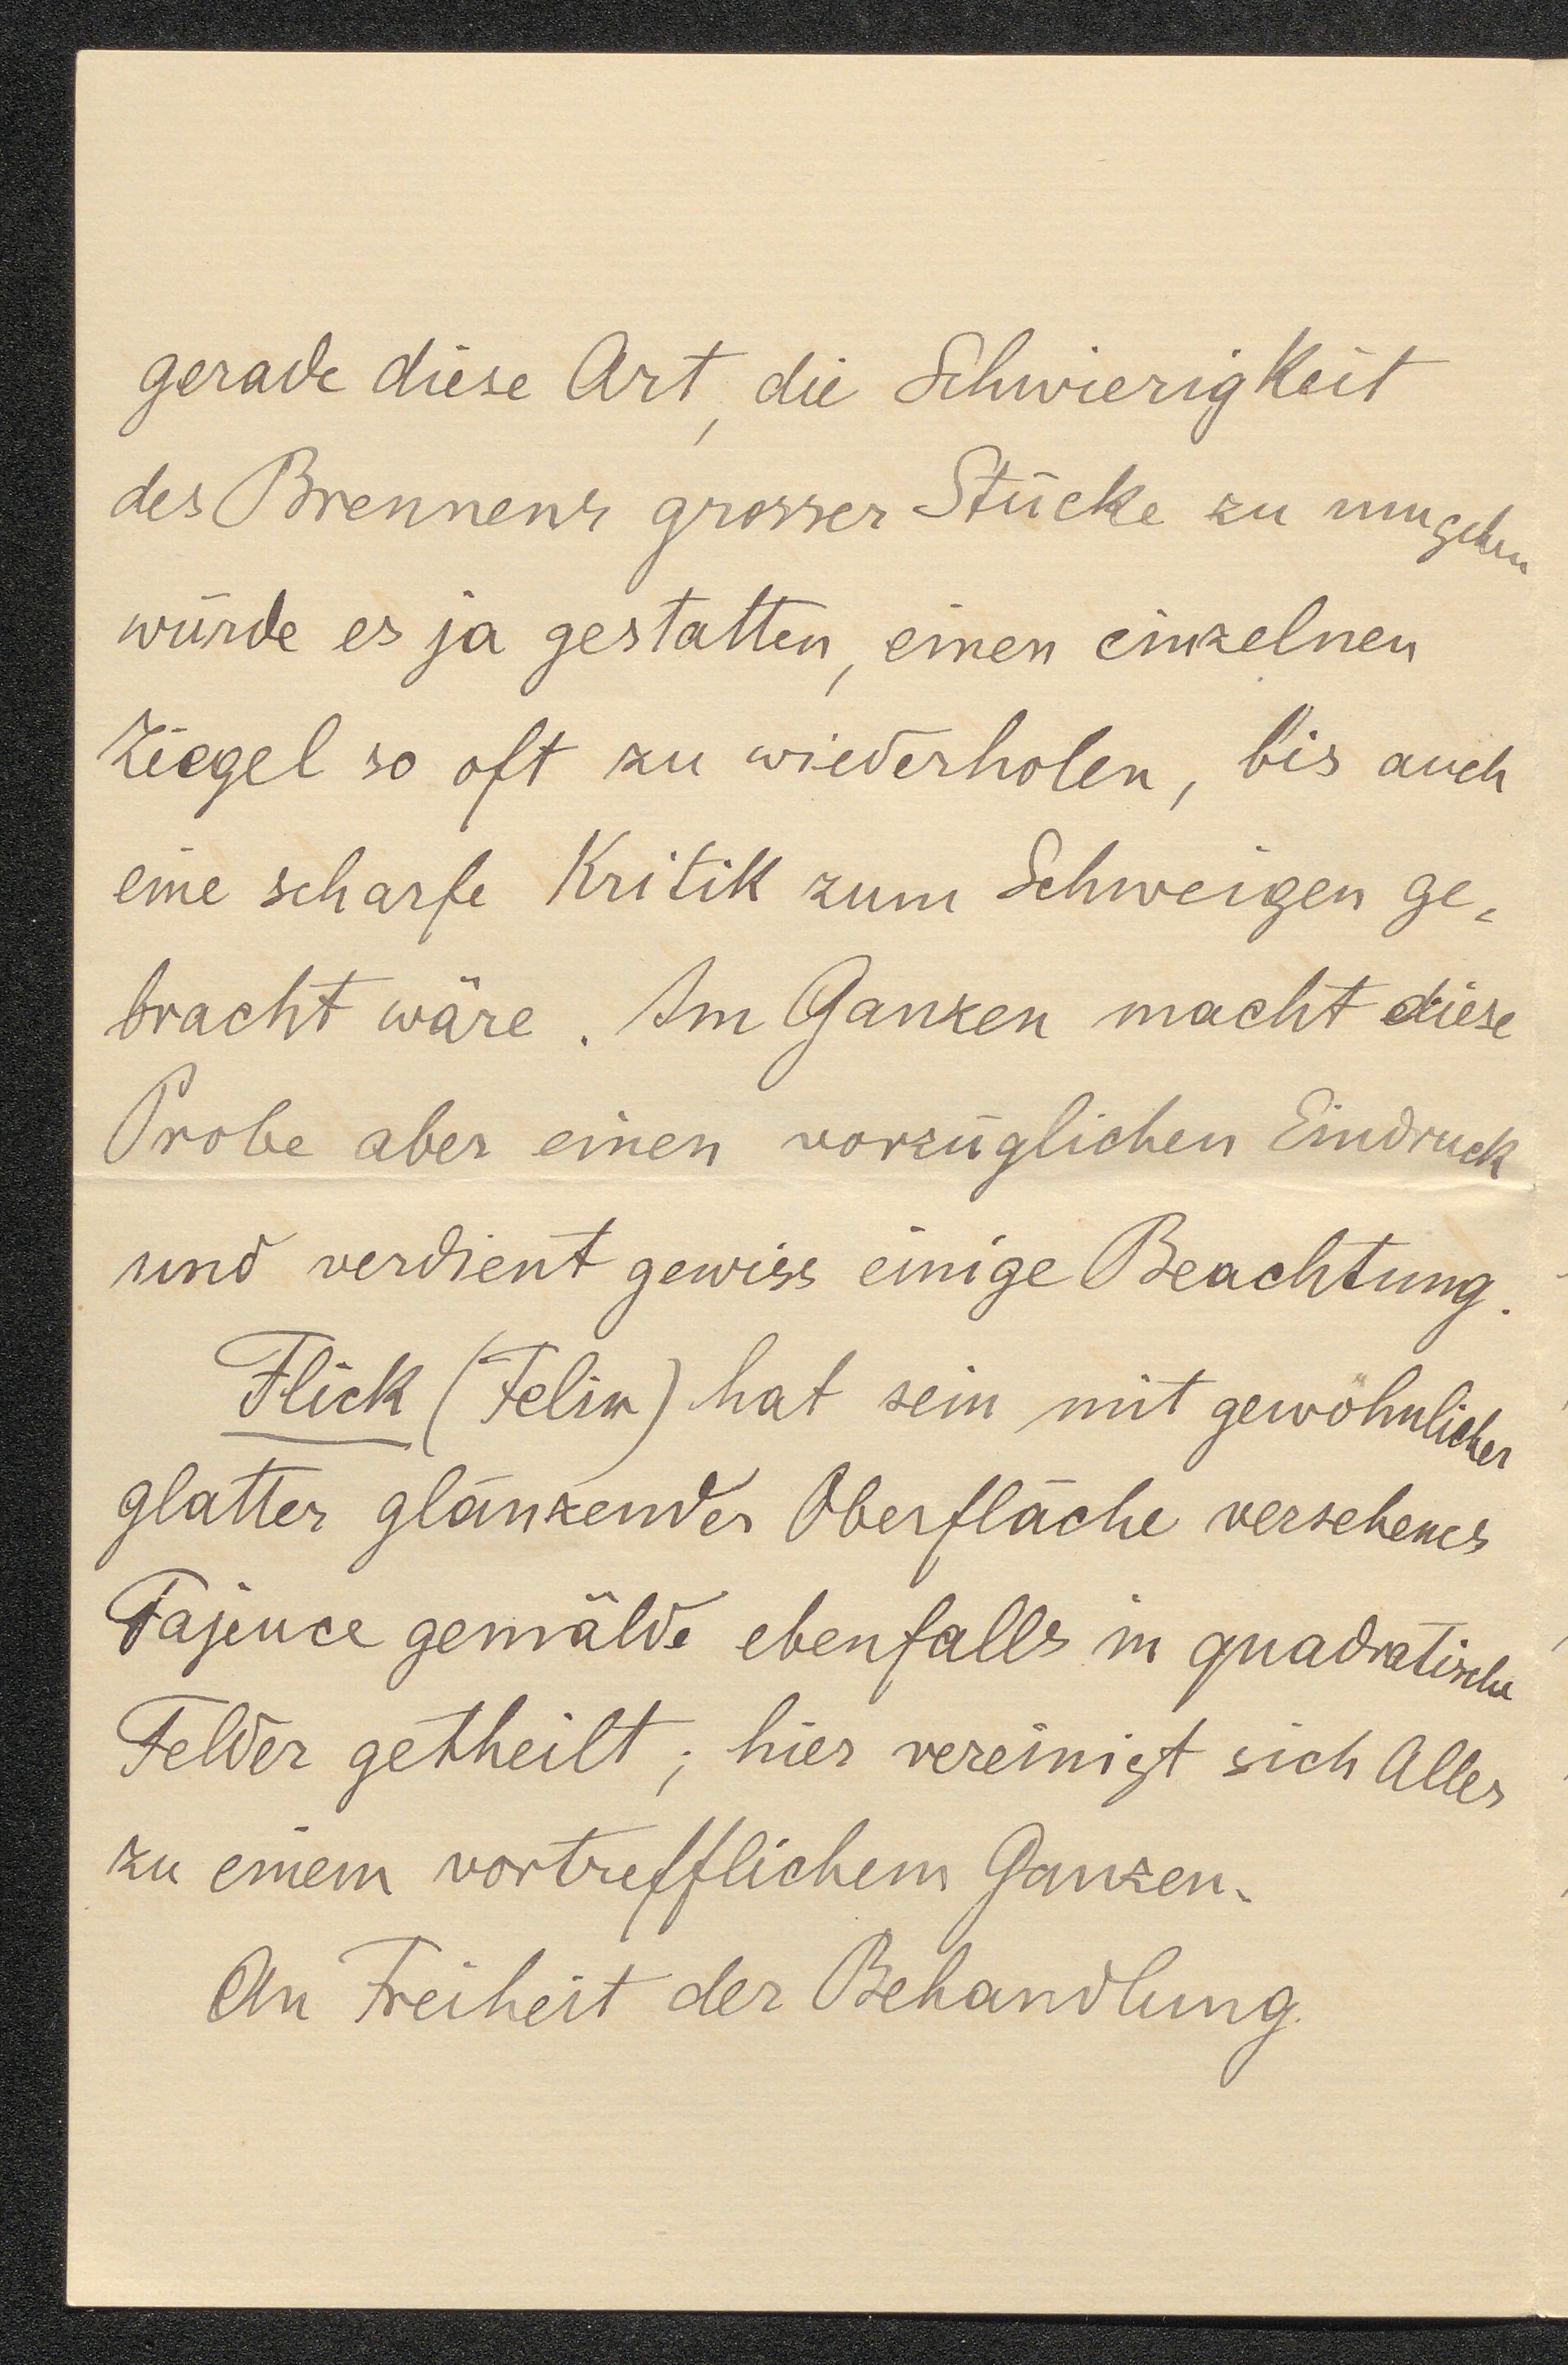 gerade diese Art, die Schwierigkeit
des Brennens grosser Stücke zu umgehen
würde es ja gestatten, einen einzelnen
Ziegel so oft zu wiederholen, bis auch
eine scharfe Kritik zum Schweigen ge-
bracht wäre. Im Ganzen macht diese
Probe aber einen vorzüglichen Eindruck
und verdient gewiss einige Beachtung.
Flick (Felix) hat sein mit gewöhnlicher
glatter glänzender Oberfläche versehenes
Fajence gemälde ebenfalls in quadratische
Felder getheilt; hier vereinigt sich Alles
zu einem vortrefflichem Ganzen.
An Freiheit der Behandlung